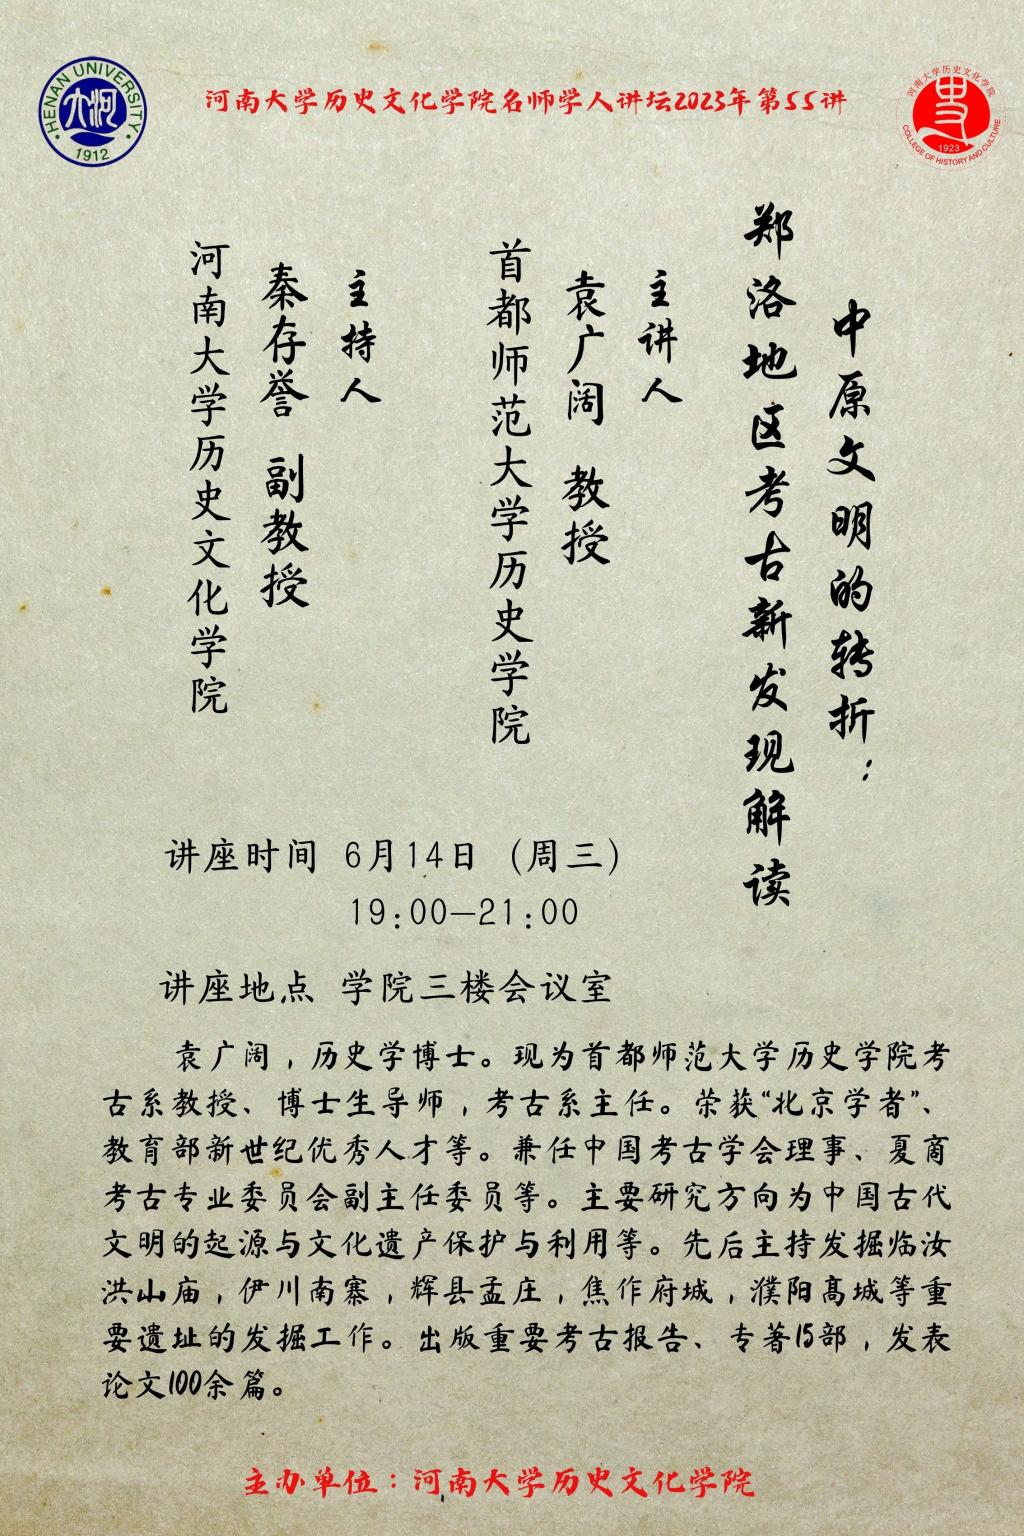 HENAN UNIVERSITY
河大
1912
河南大学历史文化学院名师学人讲坛2023年第55讲
河南大学历史文化学院
史
1923
COLLEGE OF HISTORY AND CULTURE
中原文明的转折：
郑洛地区考古新发现解读
主讲人
袁广阔 教授
首都师范大学历史学院
主持人
秦存誉 副教授
河南大学历史文化学院
讲座时间 6月14日（周三）
19:00—21:00
讲座地点 学院三楼会议室
袁广阔，历史学博士。现为首都师范大学历史学院考
古系教授、博士生导师，考古系主任。荣获“北京学者”、
教育部新世纪优秀人才等。兼任中国考古学会理事、夏商
考古专业委员会副主任委员等。主要研究方向为中国古代
文明的起源与文化遗产保护与利用等。先后主持发掘临汝
洪山庙，伊川南寨，辉县孟庄，焦作府城，濮阳高城等重
要遗址的发掘工作。出版重要考古报告、专著15部，发表
论文100余篇。
主办单位：河南大学历史文化学院